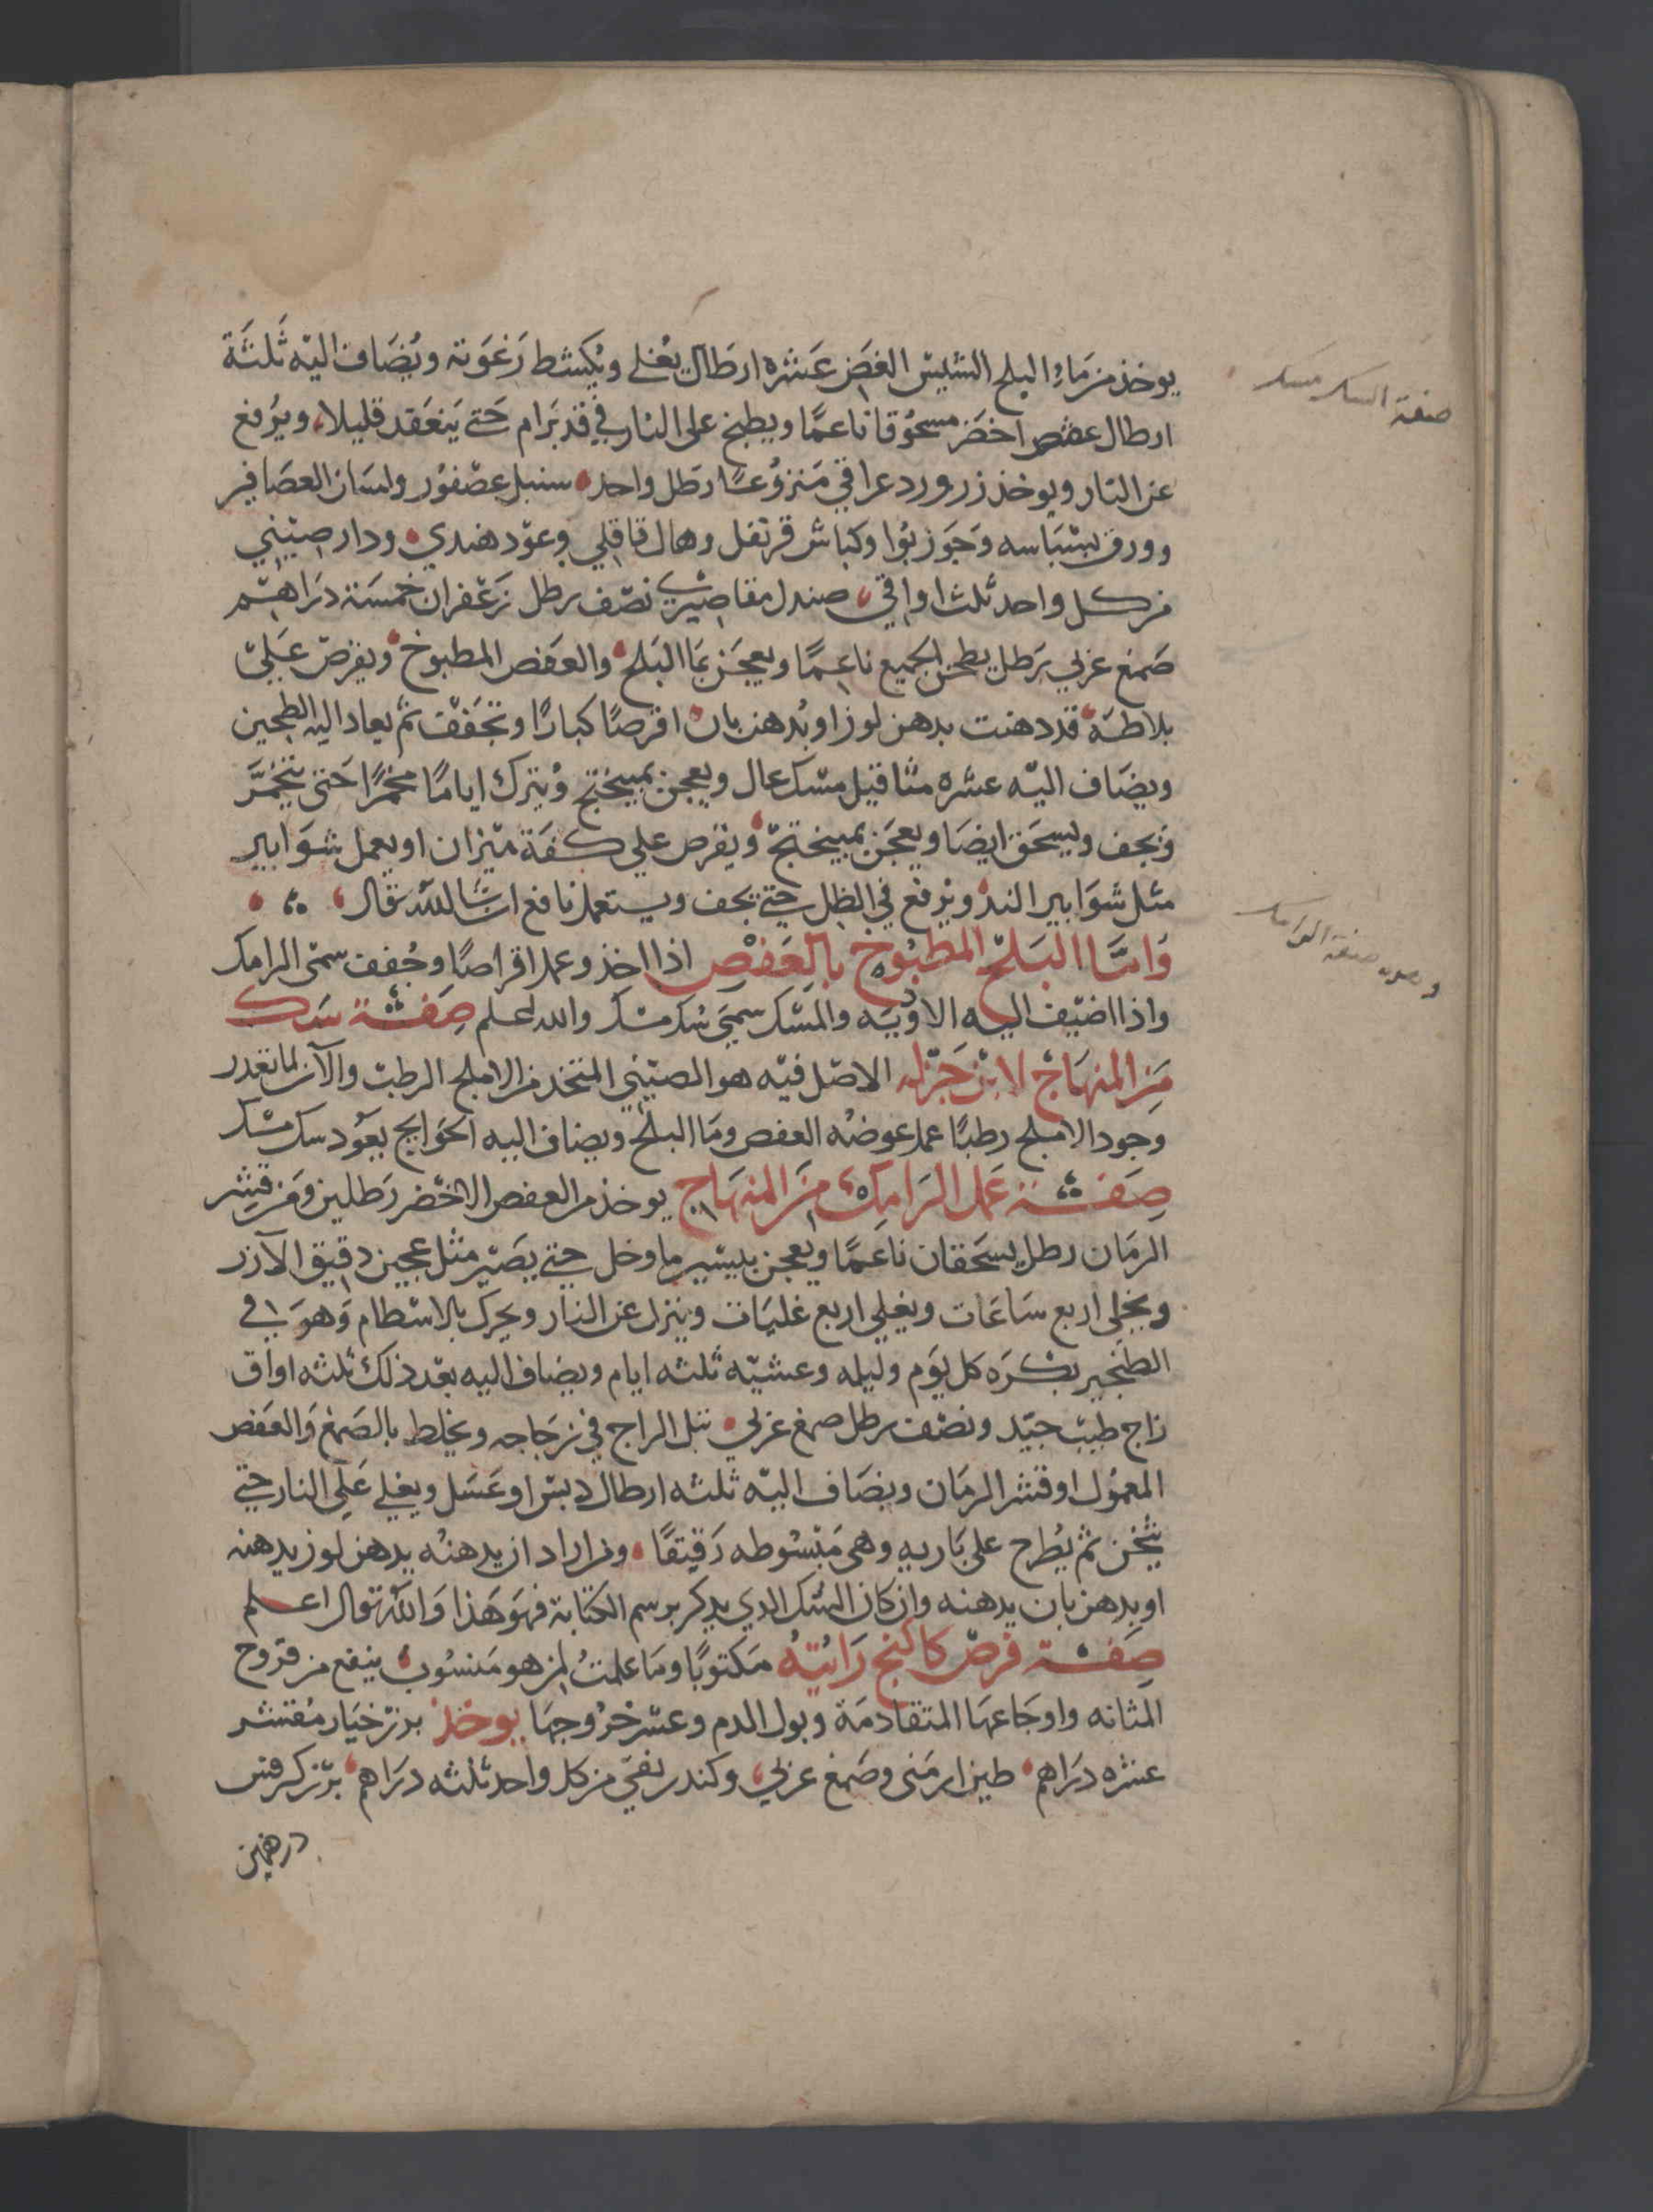 يوخذ من ماء البلح الشيس الغض عشره ارطال يغلي ويكشط رغوته ويضاف اليه ثلثة
ارطال عفص اخضر مسحوقا ناعما ويطبخ على النار في قدر برام حتي ينعقد قليلا ويرفع
عن النار ويوخذ زر ورد عراقي منزوعا رطل واحد سنبل عصفور ولسان العصافير
وورق بسباسه وجوز بوا وكباش قرنفل وهال قاقلي وعود هندي ودار صيني
من كل واحد ثلث اواقي صندل مقاصيري نصف رطل زعفران خمسة دراهم
صمغ عربي رطل يطحن الجميع ناعما ويعجن بما البلح والعفص المطبوخ ويقرص علي
بلاطة قد دهنت بدهن لوز او بدهن بان اقرصا كبارا وتجفف ثم يعاد اليه الطحين
ويضاف اليه عشره مثاقيل مسك عال ويعجن بميبختج ويترك اياما مخمرا حتى يتخمر
ويجف ويسحق ايضا ويعجن بميبختج ويقرص علي كفة ميزان او يعمل شوابير
مثل شوابير الند ويرفع في الظل حتي يجف ويستعمل نافع ان شا الله تعالى
واما البلح المطبوخ بالعفص اذا اخذ وعمل اقراصا وجفف سمى الرامك
واذا اضيف اليه الادويه والمسك سمي سك مسك والله اعلم صفة سك
من المنهاج لابن جزله الاصل فيه هو الصيني المتخذ من الاملج الرطب والآن لما تعدر
وجود الاملج رطبا عمل عوضه العفص وما البلح ويضاف اليه الحوايج يعود سك مسك
صفة عمل الرامك من المنهاج يوخذ من العفص الاخضر رطلين ومن قشر
الرمان رطل يسحقان ناعما ويعجن بيسير ما وخل حتي يصير مثل عجين دقيق الارز
ويخلى اربع ساعات ويغلي اربع غليات وينزل عن النار ويحرك بالاسطام وهو في
الطنجير بكره كل يوم وليله وعشيه ثلثه ايام ويضاف اليه بعد ذلك ثلثه اواق
زاج طيب جيد ونصف رطل صمغ عربي تبل الزاج في زجاجه ويخلط بالصمغ والعفص
المعمول او قشر الرمان ويضاف اليه ثلثه ارطال دبس او عسل ويغلي علي النار حتي
يثخن ثم يطرح على باريه وهي مبسوطه رقيقا ومن اراد ان يدهنه بدهن لوز يدهنه
او بدهن بان يدهنه وان كان السك الدي يدكر برسم الكتابة فهو هذا والله تعالى اعلم
صفة قرص كاكنج رايته مكتوبا وما علمت لمن هو منسوب ينفع من قروح
المثانه واوجاعها المتقادمة وبول الدم وعسر خروجها يوخذ بزر خيار مقشر
عشره دراهم طين ارمنى وصمغ عربي وكندر نقي من كل واحد ثلثه دراهم بزر كرفس
درهمين
صنعة السك مسك
صنعة الرامك